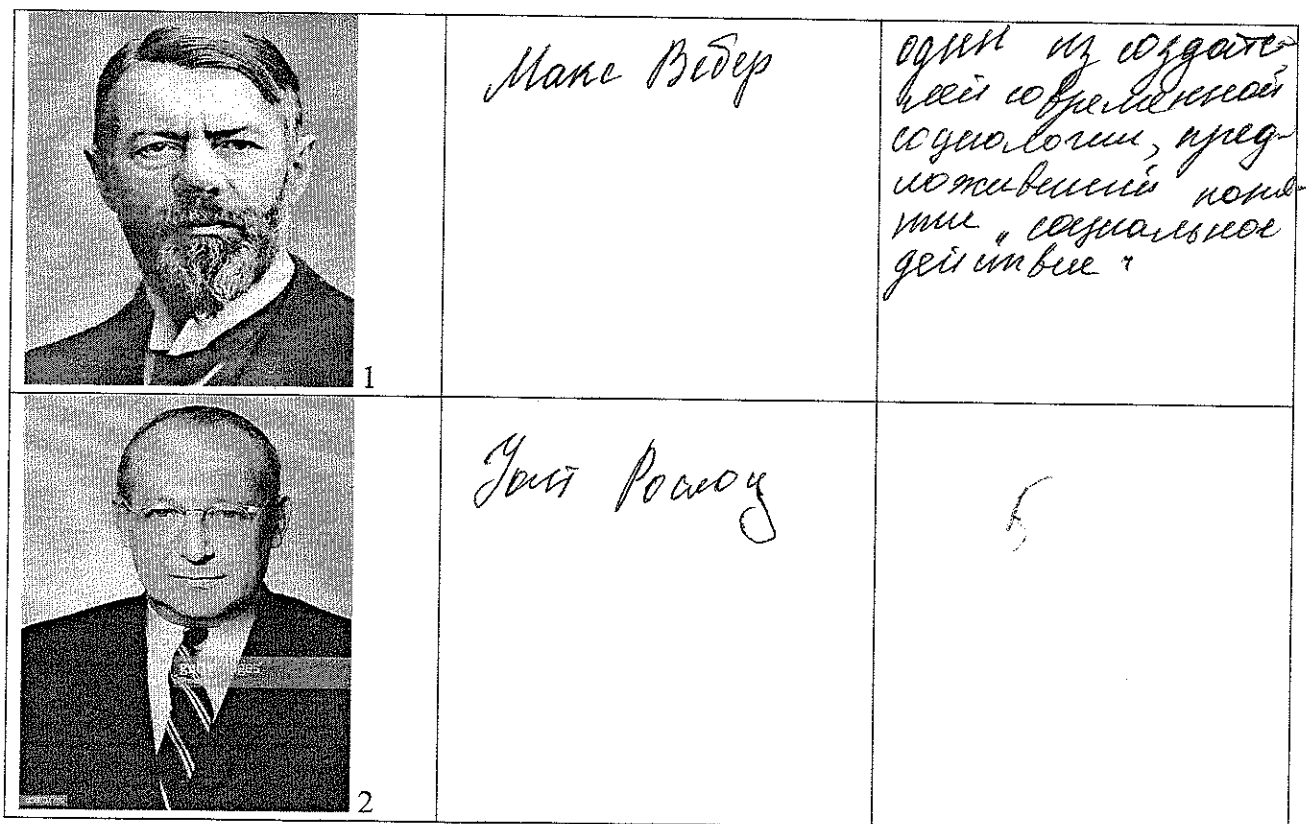 Макс Вебер
один из создате-
лей современной
социологии, пред-
ложивший поня-
тие „социальное
действие“
1
Уолт Ростоу
5
2